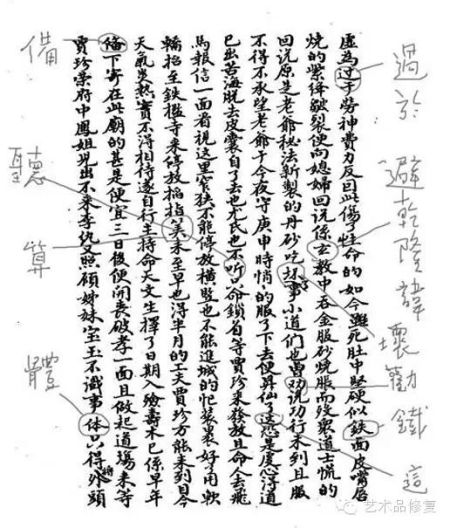 過於
避乾隆諱
壞
勸
鐵
這
虛為过于勞神費力反因此傷了性命的如今雖死肚中堅硬似鉄面皮嘴唇
燒的紫絳皺裂便向媳婦回说係玄教中吞金服砂燒脹而殁衆道士慌的
回说原是老爺秘法新製的丹砂吃坏事小道们也曾劝说功行未到且服
不得不承望老爺于今夜守庚申時悄的服了下去便昇仙了这恐是虔心得道
已出苦海脱去皮囊自了去也尤氏也不听只命鎖着等賈珍来發放且命人去飛
馬報信一面看視这里窄狹不能停放横竪也不能進城的忙装裹好了用軟
轎抬至鉄檻寺来停放掐指筭来至早也得半月的工夫賈珍方能来到目今
天氣炎熱實不得相待遂自行主持命天文生擇了日期入殮壽木已係早年
俻下寄在此廟的甚是便宜三日後便開喪破孝一面且做起道塲来等
賈珍榮府中鳳姐兒出不来李纨照顧姊妹宝玉不識事体只得将外頭
備
聽
算
體
艺术品修复